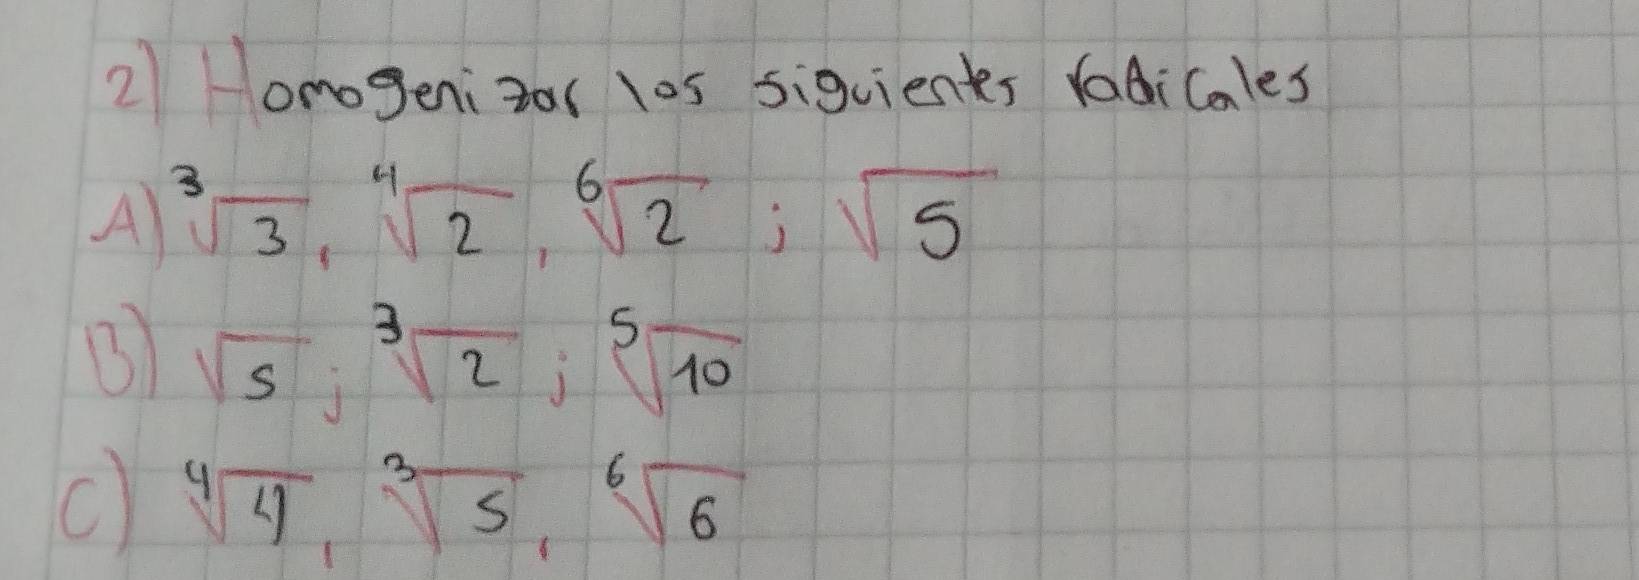 2) Homogenizar los siguientes radicales
A) ∛3, ∜2, ⁶√2 ; √5
B) √5 ; ∛2 ; ⁵√10
C) ∜4, ∛5, ⁶√6